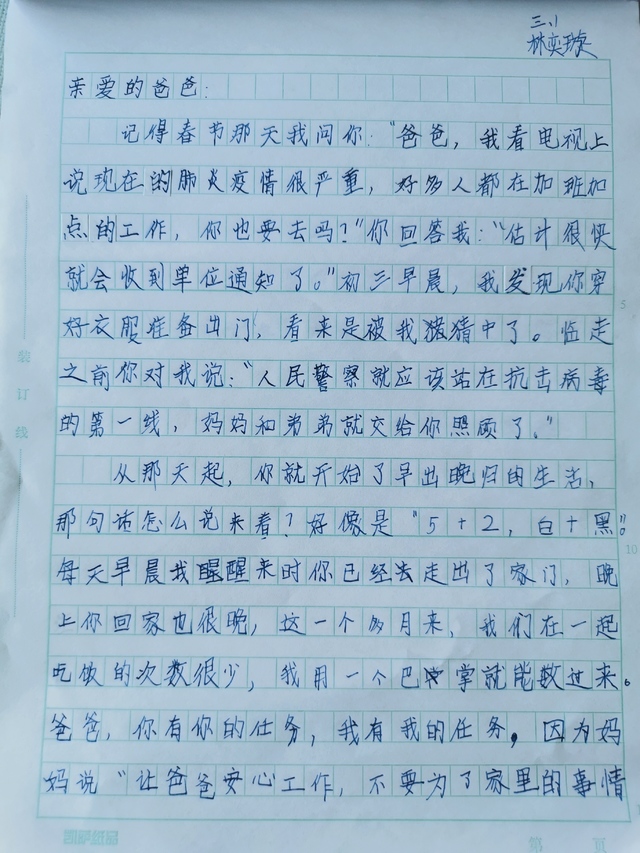 三.1
林奕璇
亲爱的爸爸：
记得春节那天我问你：“爸爸，我看电视上
说现在的肺炎疫情很严重，好多人都在加班加
点的工作，你也要去吗？”你回答我：“估计很快
就会收到单位通知了。”初三早晨，我发现你穿
好衣服准备出门，看来是被我猜中了。临走
之前你对我说：“人民警察就应该站在抗击病毒
的第一线，妈妈和弟弟就交给你照顾了。”
从那天起，你就开始了早出晚归的生活，
那句话怎么说来着？好像是“5+2，白+黑”。
每天早晨我醒来时你已经走出了家门，晚
上你回家也很晚，这一个多月来，我们在一起
吃饭的次数很少，我用一个巴掌就能数过来。
爸爸，你有你的任务，我有我的任务，因为妈
妈说“让爸爸安心工作，不要为了家里的事情
装订线
5
10
第 页